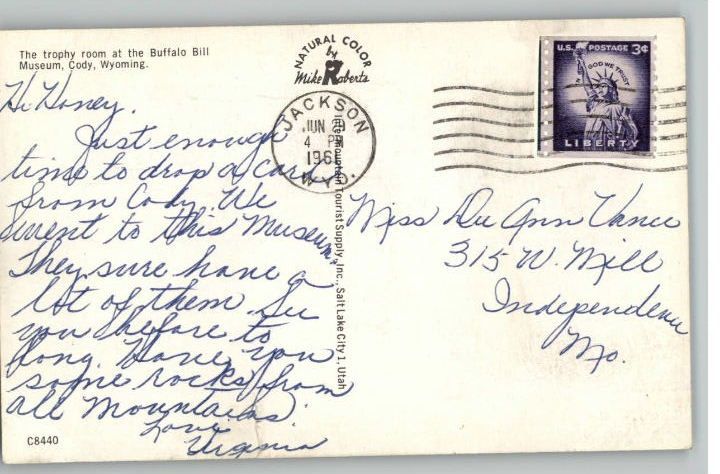 The trophy room at the Buffalo Bill
Museum, Cody, Wyoming.
NATURAL COLOR
by
Mike Roberts
JACKSON
JUN
4 PM
196
WYO.
U.S. POSTAGE 3¢
IN GOD WE TRUST
LIBERTY
Hi Honey.
Just enough
time to drop a card
from Cody. We
went to this Museum.
They sure have a
lot of them. See
you before to
long. Have you
some rocks from
all Mountains.
Love
Virginia
Mountain Tourist Supply, Inc., Salt Lake City 1, Utah
Miss Du Ann Vance
315 W. Mill
Independence
Mo.
C8440